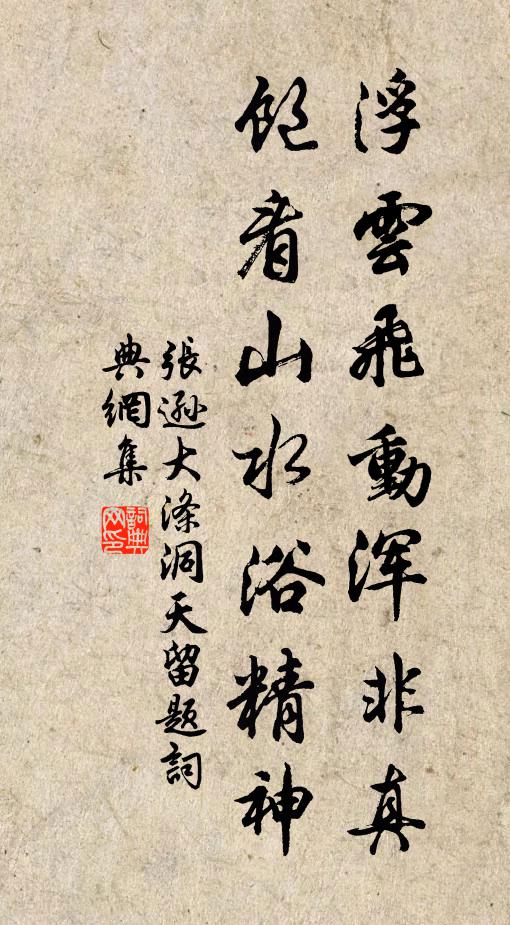 浮雲飛動渾非真
飽看山水浴精神
張遜大滌洞天留題詞
典網集
詞典網印